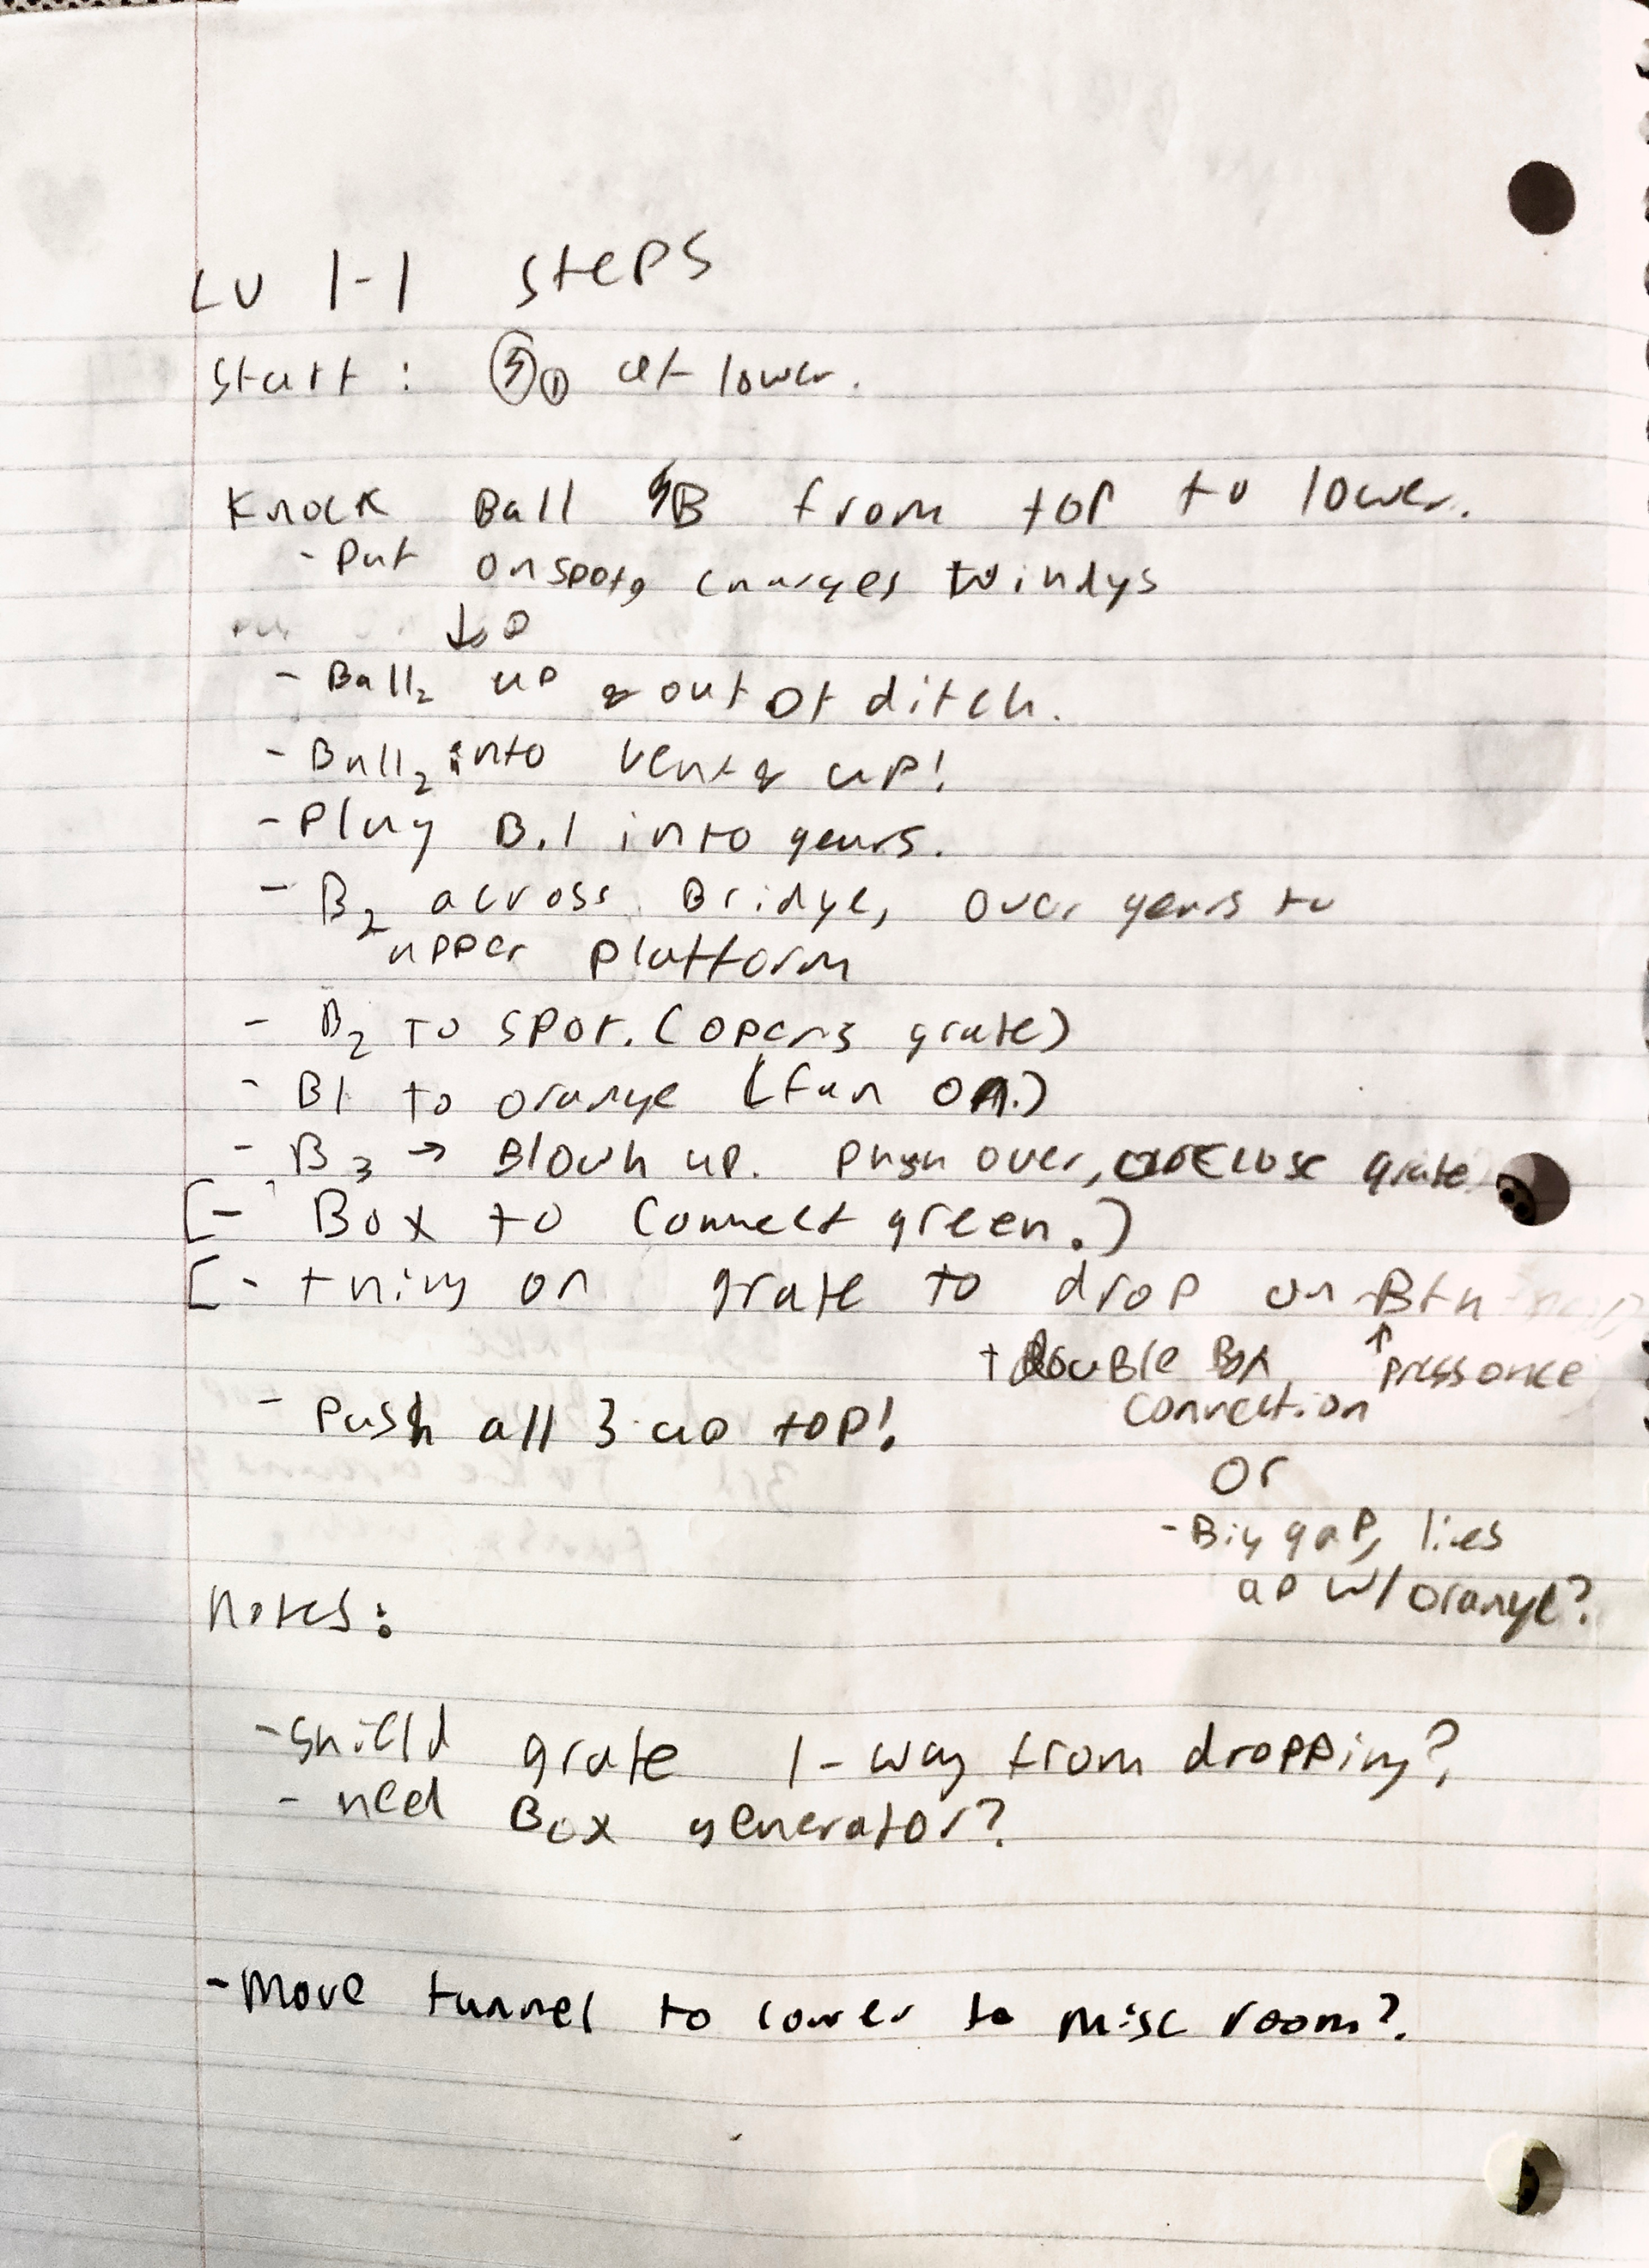 LV 1-1 Steps
Start: ① at lower.
Knock Ball B from top to lower.
- Put on spot, charges windys
↓
- Ball₂ up & out of ditch.
- Ball₂ into vent & up!
- Plug B.1 into gears.
- B₂ across Bridge, over gears to
upper platform
- B₂ to spot. (opens grate)
- B1 to orange (fan on.)
- B₃ → Blown up. Push over, close grate
[- Box to connect green.)
[- thing on grate to drop on Btn
+ Double Box ↑ press once
connection
- Push all 3 up top!
or
- Big gap, lies
up w/ orange?
Notes:
- Shield grate 1-way from dropping?
- need Box generator?
- Move tunnel to lower to misc room?